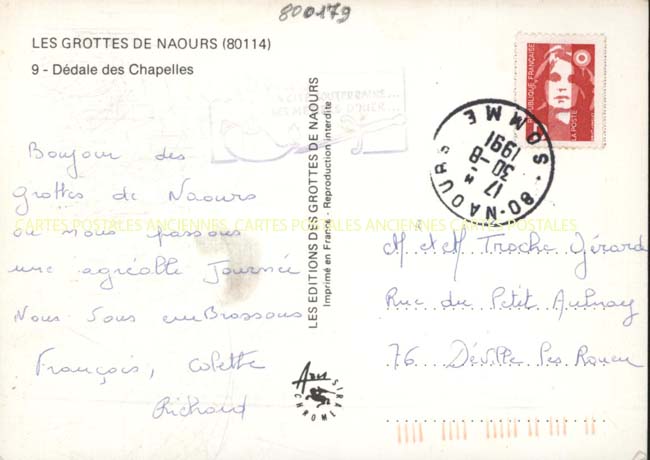 800179
LES GROTTES DE NAOURS (80114)
9 - Dédale des Chapelles
Bonjour des
grottes de Naours
ou nous passons
une agréable Journée
Nous Vous emBrassons
François, Colette
Richard
LES EDITIONS DES GROTTES DE NAOURS
Imprimé en France - Reproduction interdite
CARTES POSTALES ANCIENNES CARTES POSTALES ANCIENNES CARTES POSTALES
REPUBLIQUE FRANÇAISE
LA POSTE
80 - NAOURS
SOMME
17 H
30-8
1991
M et M Troche Gérard
Rue du Petit Aulnay
76 Déville les Rouen